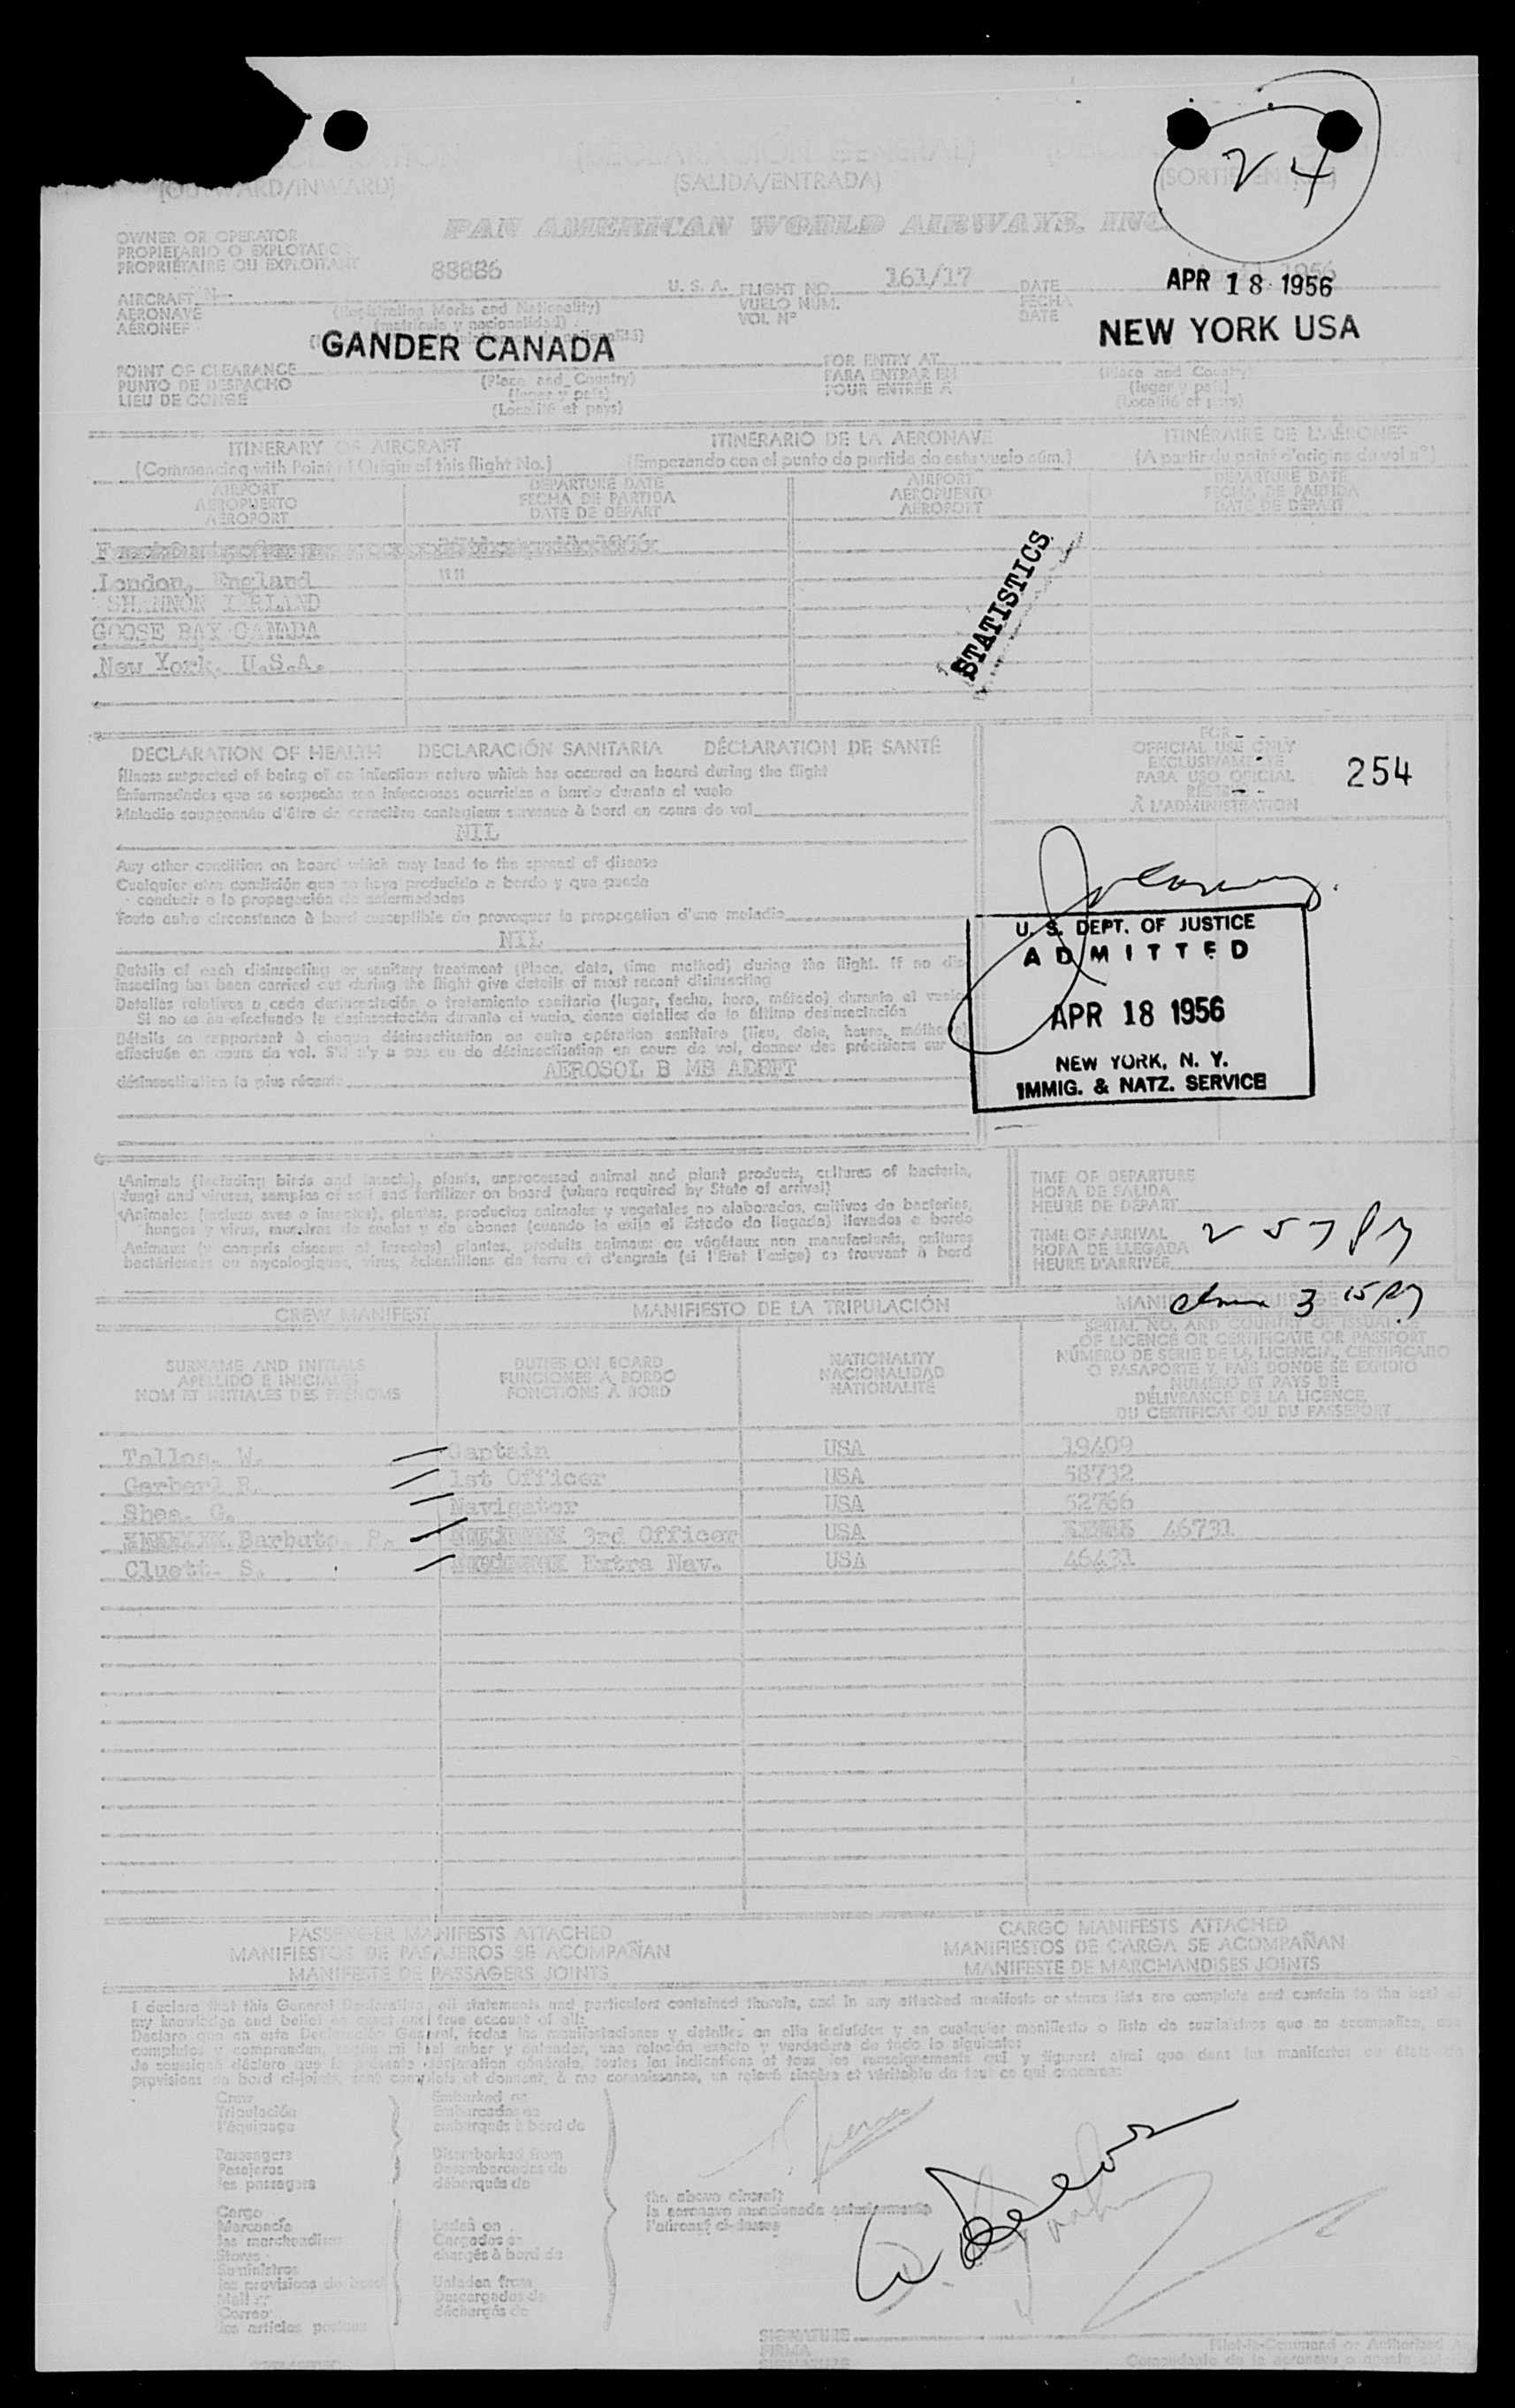 24
(OUTWARD/INWARD) (SALIDA/ENTRADA)
PAN AMERICAN WORLD AIRWAYS, INC.
OWNER OR OPERATOR
PROPIETARIO O EXPLOTADOR
PROPRIÉTAIRE OU EXPLOITANT
88886 U. S. A. FLIGHT NO. 161/17 DATE APR 18 1956
AIRCRAFT
AERONAVE (Registration Marks and Nationality) VUELO NÚM. FECHA
AÉRONEF (matrícula y nacionalidad) VOL Nº DATE
GANDER CANADA NEW YORK USA
POINT OF CLEARANCE FOR ENTRY AT
PUNTO DE DESPACHO (Place and Country) PARA ENTRAR EN (Place and Country)
LIEU DE CONGÉ (lugar y país) POUR ENTRÉE A (lugar y país)
(Localité et pays) (Localité et pays)
ITINERARY OF AIRCRAFT ITINERARIO DE LA AERONAVE ITINÉRAIRE DE L'AÉRONEF
(Commencing with Point of Origin of this flight No.) (Empezando con el punto de partida de este vuelo núm.) (A partir du point d'origine du vol nº)
AIRPORT DEPARTURE DATE AIRPORT DEPARTURE DATE
AEROPUERTO FECHA DE PARTIDA AEROPUERTO FECHA DE PARTIDA
AÉROPORT DATE DE DÉPART AÉROPORT DATE DE DÉPART
London, England " "
SHANNON IRLAND
GOOSE BAY CANADA
New York, U.S.A.
STATISTICS
DECLARATION OF HEALTH DECLARACIÓN SANITARIA DÉCLARATION DE SANTÉ
Illness suspected of being of an infectious nature which has occured on board during the flight
Enfermedades que se sospecha son infecciosas ocurridas a bordo durante el vuelo
Maladie soupçonnée d'être de caractère contagieux survenue à bord en cours de vol
NIL
FOR
OFFICIAL USE ONLY
EXCLUSIVAMENTE
PARA USO OFICIAL
RÉSERVÉ
À L'ADMINISTRATION
254
Any other condition on board which may lead to the spread of disease
Cualquier otra condición que se haya producido a bordo y que pueda
conducir a la propagación de enfermedades
Toute autre circonstance à bord susceptible de provoquer la propagation d'une maladie
NIL
U. S. DEPT. OF JUSTICE
ADMITTED
APR 18 1956
NEW YORK, N. Y.
IMMIG. & NATZ. SERVICE
Details of each disinsecting or sanitary treatment (Place, date, time method) during the flight. If no dis-
insecting has been carried out during the flight give details of most recent disinsecting
Detalles relativos a cada desinsectación o tratamiento sanitario (lugar, fecha, hora, método) durante el vuelo
Si no se ha efectuado la desinsectación durante el vuelo, dense detalles de la última desinsectación
Détails se rapportant à chaque désinsectisation ou autre opération sanitaire (lieu, date, heure, méthode)
effectuée en cours de vol. S'il n'y a pas eu de désinsectisation en cours de vol, donner des précisions sur
désinsectisation la plus récente AEROSOL B MB ADEPT
Animals (including birds and insects), plants, unprocessed animal and plant products, cultures of bacteria,
fungi and viruses, samples of soil and fertilizer on board (where required by State of arrival)
Animales (incluso aves e insectos), plantas, productos animales y vegetales no elaborados, cultivos de bacterias,
hongos y virus, muestras de suelos y de abonos (cuando lo exija el Estado de llegada) llevados a bordo
Animaux (y compris oiseaux et insectes) plantes, produits animaux ou végétaux non manufacturés, cultures
bactériennes ou mycologiques, virus, échantillons de terre et d'engrais (si l'État l'exige) se trouvant à bord
TIME OF DEPARTURE
HORA DE SALIDA
HEURE DE DÉPART
TIME OF ARRIVAL
HORA DE LLEGADA 2 57 PM
HEURE D'ARRIVÉE
3 15 PM
CREW MANIFEST MANIFIESTO DE LA TRIPULACIÓN
SURNAME AND INITIALS
APELLIDO E INICIALES
NOM ET INITIALES DES PRÉNOMS
DUTIES ON BOARD
FUNCIONES A BORDO
FONCTIONS À BORD
NATIONALITY
NACIONALIDAD
NATIONALITÉ
SERIAL NO. AND COUNTRY OF ISSUANCE
OF LICENCE OR CERTIFICATE OR PASSPORT
NÚMERO DE SERIE DE LA LICENCIA, CERTIFICADO
O PASAPORTE Y PAÍS DONDE SE EXPIDIÓ
NUMÉRO ET PAYS DE
DÉLIVRANCE DE LA LICENCE,
DU CERTIFICAT OU DU PASSEPORT
W. Captain USA 19409
Gerber, R. 1st Officer USA 58732
Shea, G. Navigator USA 52766
Barbuto, P. 3rd Officer USA 46731
Cluett, S. Extra Nav. USA 46431
PASSENGER MANIFESTS ATTACHED CARGO MANIFESTS ATTACHED
MANIFIESTOS DE PASAJEROS SE ACOMPAÑAN MANIFIESTOS DE CARGA SE ACOMPAÑAN
MANIFESTE DE PASSAGERS JOINTS MANIFESTE DE MARCHANDISES JOINTS
I declare that this General Declaration, all statements and particulars contained therein, and in any attached manifests or stores lists are complete and contain to the best of
my knowledge and belief an exact and true account of all:
Declaro que en esta Declaración General, todas las manifestaciones y detalles en ella incluídos y en cualquier manifiesto o lista de suministros que se acompañen, son
completos y comprenden, según mi leal saber y entender, una relación exacta y verdadera de todo lo siguiente:
Je soussigné déclare que la présente déclaration générale, toutes les indications et tous les renseignements qui y figurent ainsi que dans les manifestes ou états de
provisions de bord ci-joints, sont complets et donnent, à ma connaissance, un relevé sincère et véritable de tout ce qui concerne:
Crew Embarked on
Tripulación Embarcados en
l'équipage embarqués à bord de
Passengers Disembarked from
Pasajeros Desembarcados de
les passagers débarqués de
the above aircraft
la aeronave mencionada anteriormente
l'aéronef ci-dessus
Cargo
Mercancía Laden on
les marchandises Cargados en
Stores chargés à bord de
Suministros
les provisions de bord Unladen from
Mail Descargados de
Correo déchargés de
les articles postaux
SIGNATURE
FIRMA Pilot-in-Command or Authorized
SIGNATURE Comandante de la aeronave o agente